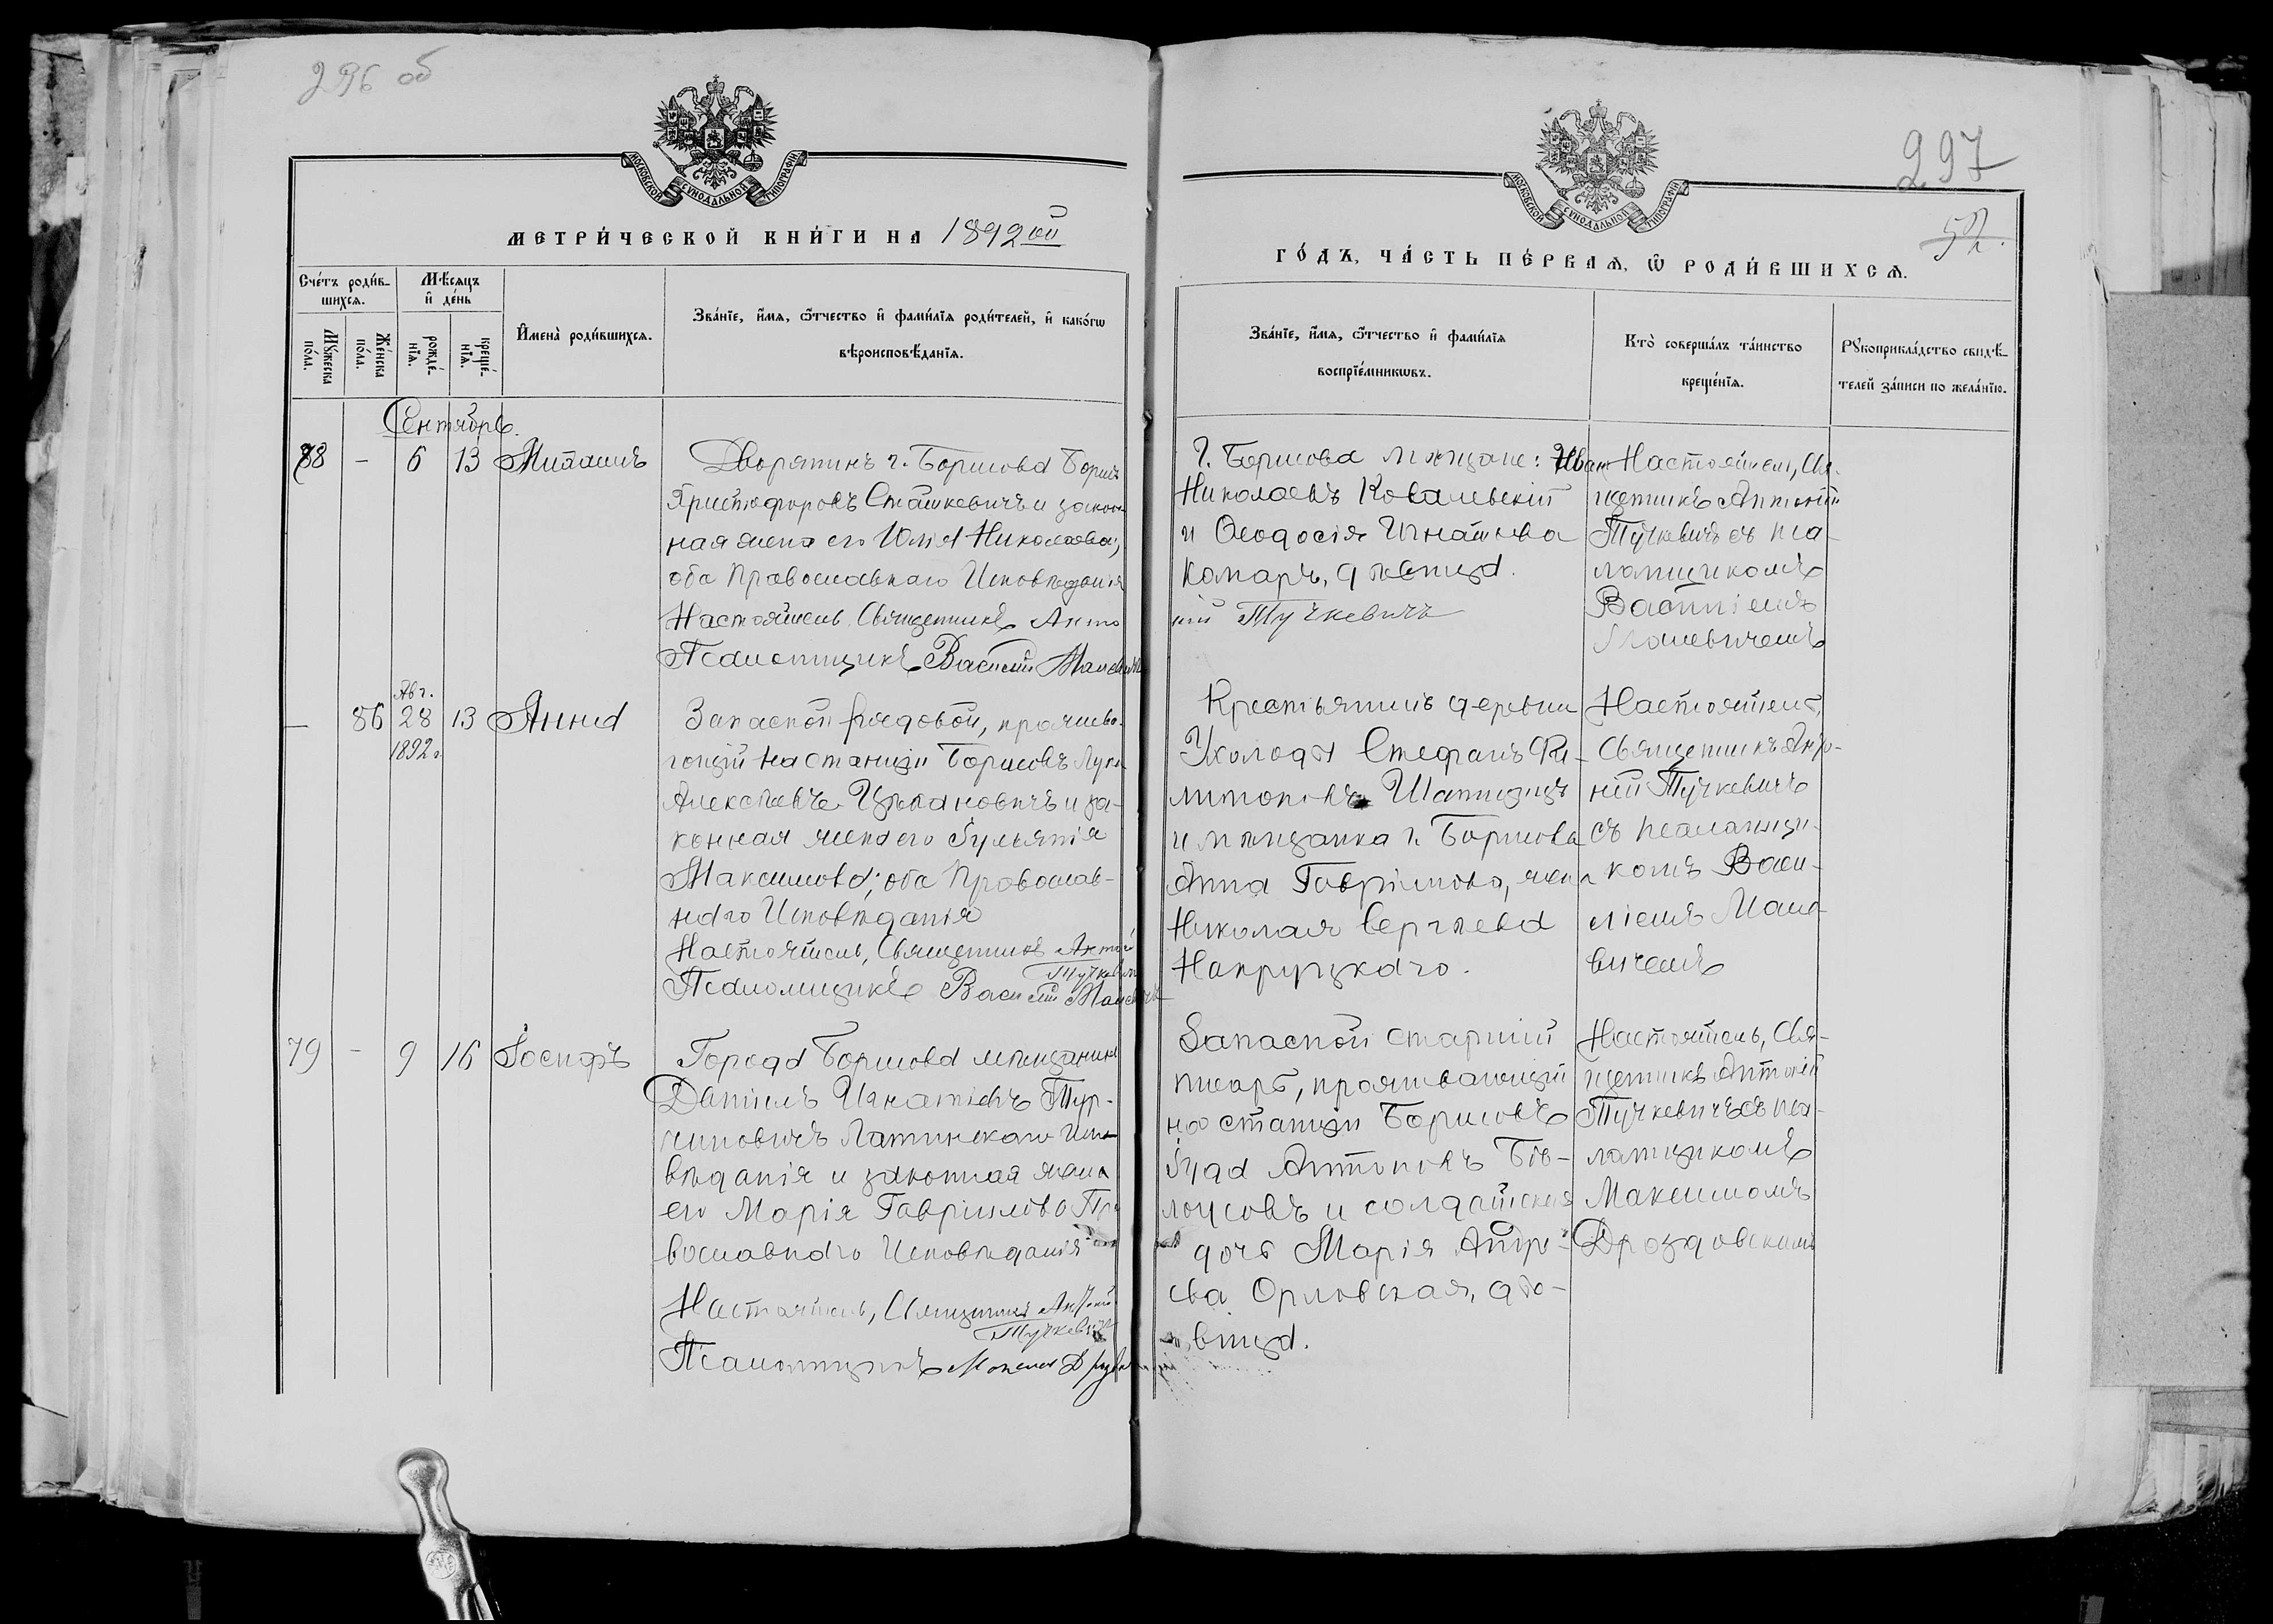 296 об
МОСКОВСКОЙ СѴНОДАЛЬНОЙ ТИПОГРАФІИ
МЕТРИ́ЧЕСКОЙ КНИ́ГИ НА 1892ой
Сче́тъ роди́в-
шихсѧ.
Мѣсѧцъ
и҆ де́нь
Мꙋ́жеска
по́ла.
Же́нска
по́ла.
рожде́-
нїѧ.
креще́-
нїѧ.
И҆мена̀ роди́вшихсѧ.
Зва́нїе, и҆́мѧ, ѻ҆́тчество и҆ фами́лїѧ роди́телей, и҆ како́гѡ
вѣроисповѣ́данїѧ.
Сентябрь.
78 – 6 13 Михаилъ
Дворянинъ г. Борисова Борисъ
Христофоровъ Сташкевичъ и закон-
ная жена его Юлія Николаева,
оба Православнаго Исповѣданія
Настоятель Священникъ Анто
Псаломщикъ Василій Малевичъ
Авг.
– 86 28 13 Анна
1892 г.
Запасной рядовой, прожива-
ющій на станціи Борисовъ Лука
Алексѣевъ и за-
конная жена его Іуліанія
Максимова; оба Православ-
наго Исповѣданія
Настоятель, Священникъ Антоній
Тучкевичъ
Псаломщикъ Василій Малевичъ
79 – 9 16 Іосифъ
Города Борисова мѣщанинъ
Даніилъ Игнатіевъ Тур-
чиновичъ Латинскаго Испо
вѣданія и законная жена
его Марія Гавріилова Пра
вославнаго Исповѣданія
Настоятель, Священникъ Антоній
Тучкевичъ
Псаломщикъ Максимъ
297
52.
МОСКОВСКОЙ СѴНОДАЛЬНОЙ ТИПОГРАФІИ
ГО́ДЪ, ЧА́СТЬ ПЕ́РВАѦ, Ѡ҆ РОДИ́ВШИХСѦ.
Зва́нїе, и҆́мѧ, ѻ҆́тчество и҆ фами́лїѧ
воспрїе́мникѡвъ.
Кто̀ соверша́лъ та́инство
креще́нїѧ.
Рꙋкоприкла́дство свидѣ́-
телей за́писи по жела́нїю.
Г. Борисова мѣщане: Иванъ
Николаевъ Ковалевскій
и Ѳеодосія Игнатьева
Комаръ, дѣвица.
ній Тучкевичъ
Настоятель, Свя-
щенникъ Антоній
Тучкевичъ съ пса-
ломщикомъ
Василіемъ
Малевичемъ
Крестьянинъ деревни
Ухолоды Стефанъ Фи-
лимоновъ
и мѣщанка г. Борисова
Анна Гавріилова, жена
Николая Сергѣева
Накрyцкаго.
Настоятель,
Священникъ Анто-
ній Тучкевичъ
съ псаломщи-
комъ Васи-
ліемъ Мале-
вичемъ
Запасной старшій
писарь, проживающій
на станціи Борисовъ
Іуда Антоновъ Бѣ-
лоусовъ и солдатская
дочь Марія Андре-
ева Орловская, дѣ-
вица.
Настоятель, Свя-
щенникъ Антоній
Тучкевичъ съ пса-
ломщикомъ
Максимомъ
Дроздовскимъ